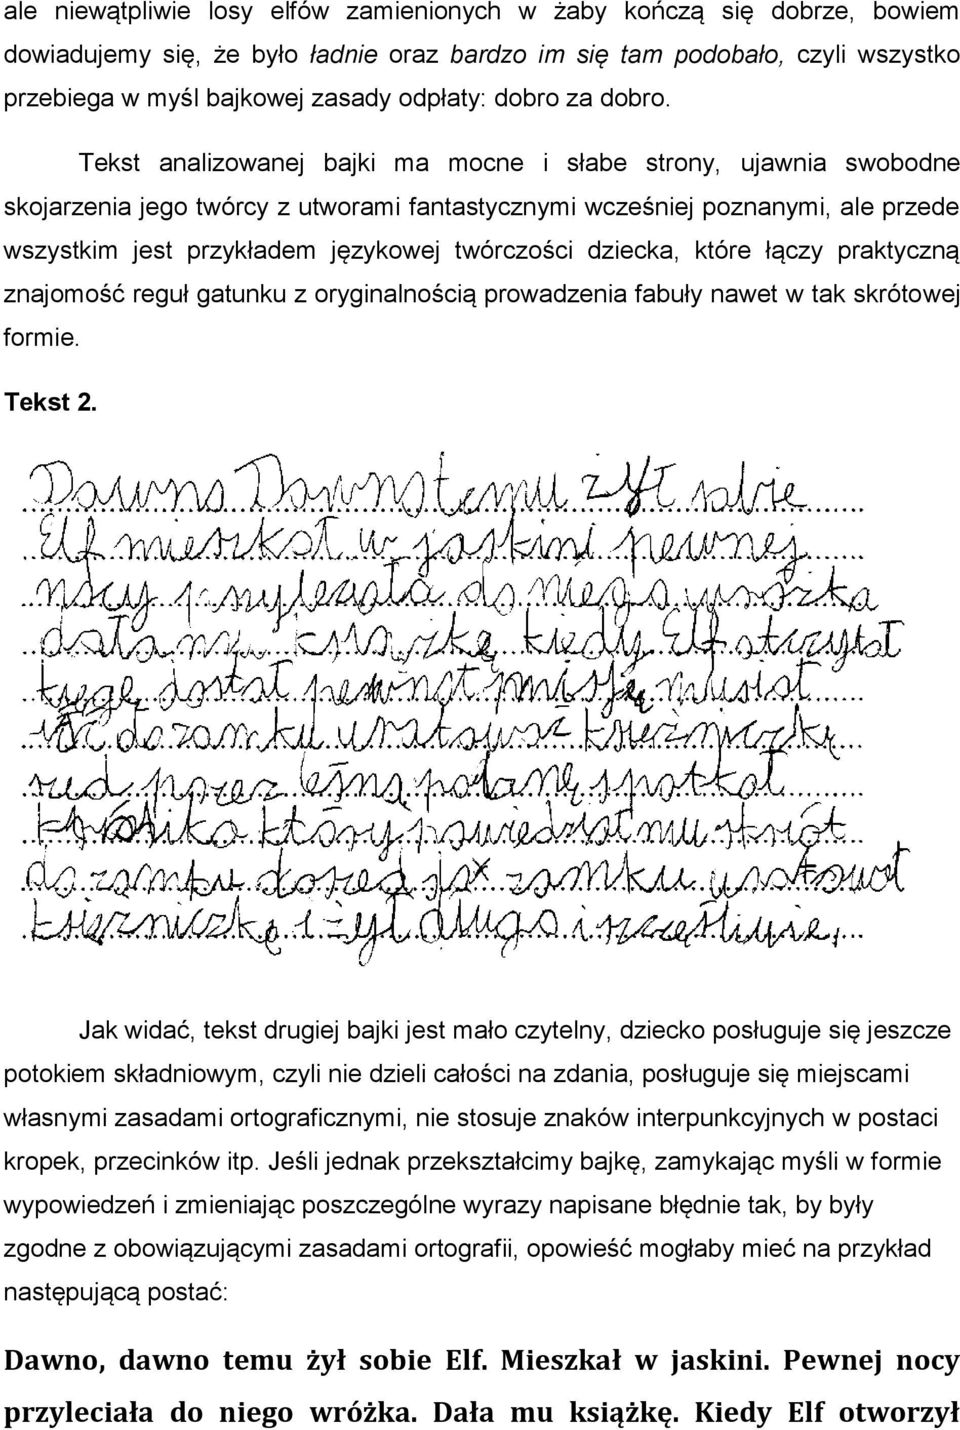 ale niewątpliwie losy elfów zamienionych w żaby kończą się dobrze, bowiem
dowiadujemy się, że było ładnie oraz bardzo im się tam podobało, czyli wszystko
przebiega w myśl bajkowej zasady odpłaty: dobro za dobro.
Tekst analizowanej bajki ma mocne i słabe strony, ujawnia swobodne
skojarzenia jego twórcy z utworami fantastycznymi wcześniej poznanymi, ale przede
wszystkim jest przykładem językowej twórczości dziecka, które łączy praktyczną
znajomość reguł gatunku z oryginalnością prowadzenia fabuły nawet w tak skrótowej
formie.
Tekst 2.
Dawno Dawno temu żył sobie
Elf mieszkał w jaskini pewnej
nocy przyleciała do niego wróżka
dała mu książkę kiedy Elf otczytał
dostał pewną misję musiał
iść do zamku uratować księżniczkę
szed przez leśną polanę spotkał
królika który powiedział mu skrót
do zamku doszed do zamku uratował
księżniczkę i żył długo i szczęśliwie,
Jak widać, tekst drugiej bajki jest mało czytelny, dziecko posługuje się jeszcze
potokiem składniowym, czyli nie dzieli całości na zdania, posługuje się miejscami
własnymi zasadami ortograficznymi, nie stosuje znaków interpunkcyjnych w postaci
kropek, przecinków itp. Jeśli jednak przekształcimy bajkę, zamykając myśli w formie
wypowiedzeń i zmieniając poszczególne wyrazy napisane błędnie tak, by były
zgodne z obowiązującymi zasadami ortografii, opowieść mogłaby mieć na przykład
następującą postać:
Dawno, dawno temu żył sobie Elf. Mieszkał w jaskini. Pewnej nocy
przyleciała do niego wróżka. Dała mu książkę. Kiedy Elf otworzył